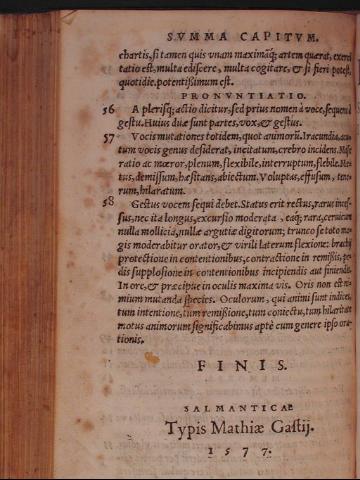 SVMMA CAPITVM.
chartis, si tamen quis vnam maximāq; artem quærat, exerci
tatio est, multa ediscere, multa cogitare, & si fieri potest,
quotidie, potentißimum est.
PRONVNTIATIO.
56 A plerisq; actio dicitur, sed prius nomen à voce, sequens à
gestu. Huius duæ sunt partes, vox, & gestus.
57 Vocis mutationes totidem, quot animorū. Iracundia, acu
tum vocis genus desiderat, incitatum, crebro incidens. Mise
ratio ac mœror, plenum, flexibile, interruptum, flebile. Me-
tus, demissum, hæsitans, abiectum. Voluptas, effusum, tene-
rum, hilaratum.
58 Gestus vocem sequi debet. Status erit rectus, rarus inces-
sus, nec ita longus, excursio moderata, eaq́; rara, ceruicum
nulla mollicia, nullæ argutiæ digitorum; trunco se toto ma-
gis moderabitur orator, & virili laterum flexione: brachij
protectione in contentionibus, contractione in remißis, pe-
dis supplosione in contentionibus incipiendis aut finiendis.
In ore, & præcipue in oculis maxima vis. Oris non est ni-
mium mutanda species. Oculorum, qui animi sunt indices,
tum intentione, tum remißione, tum coniectu, tum hilaritate
motus animorum significabimus aptè cum genere ipso ora-
tionis.
FINIS.
SALMANTICAE
Typis Mathiæ Gastij.
1577.